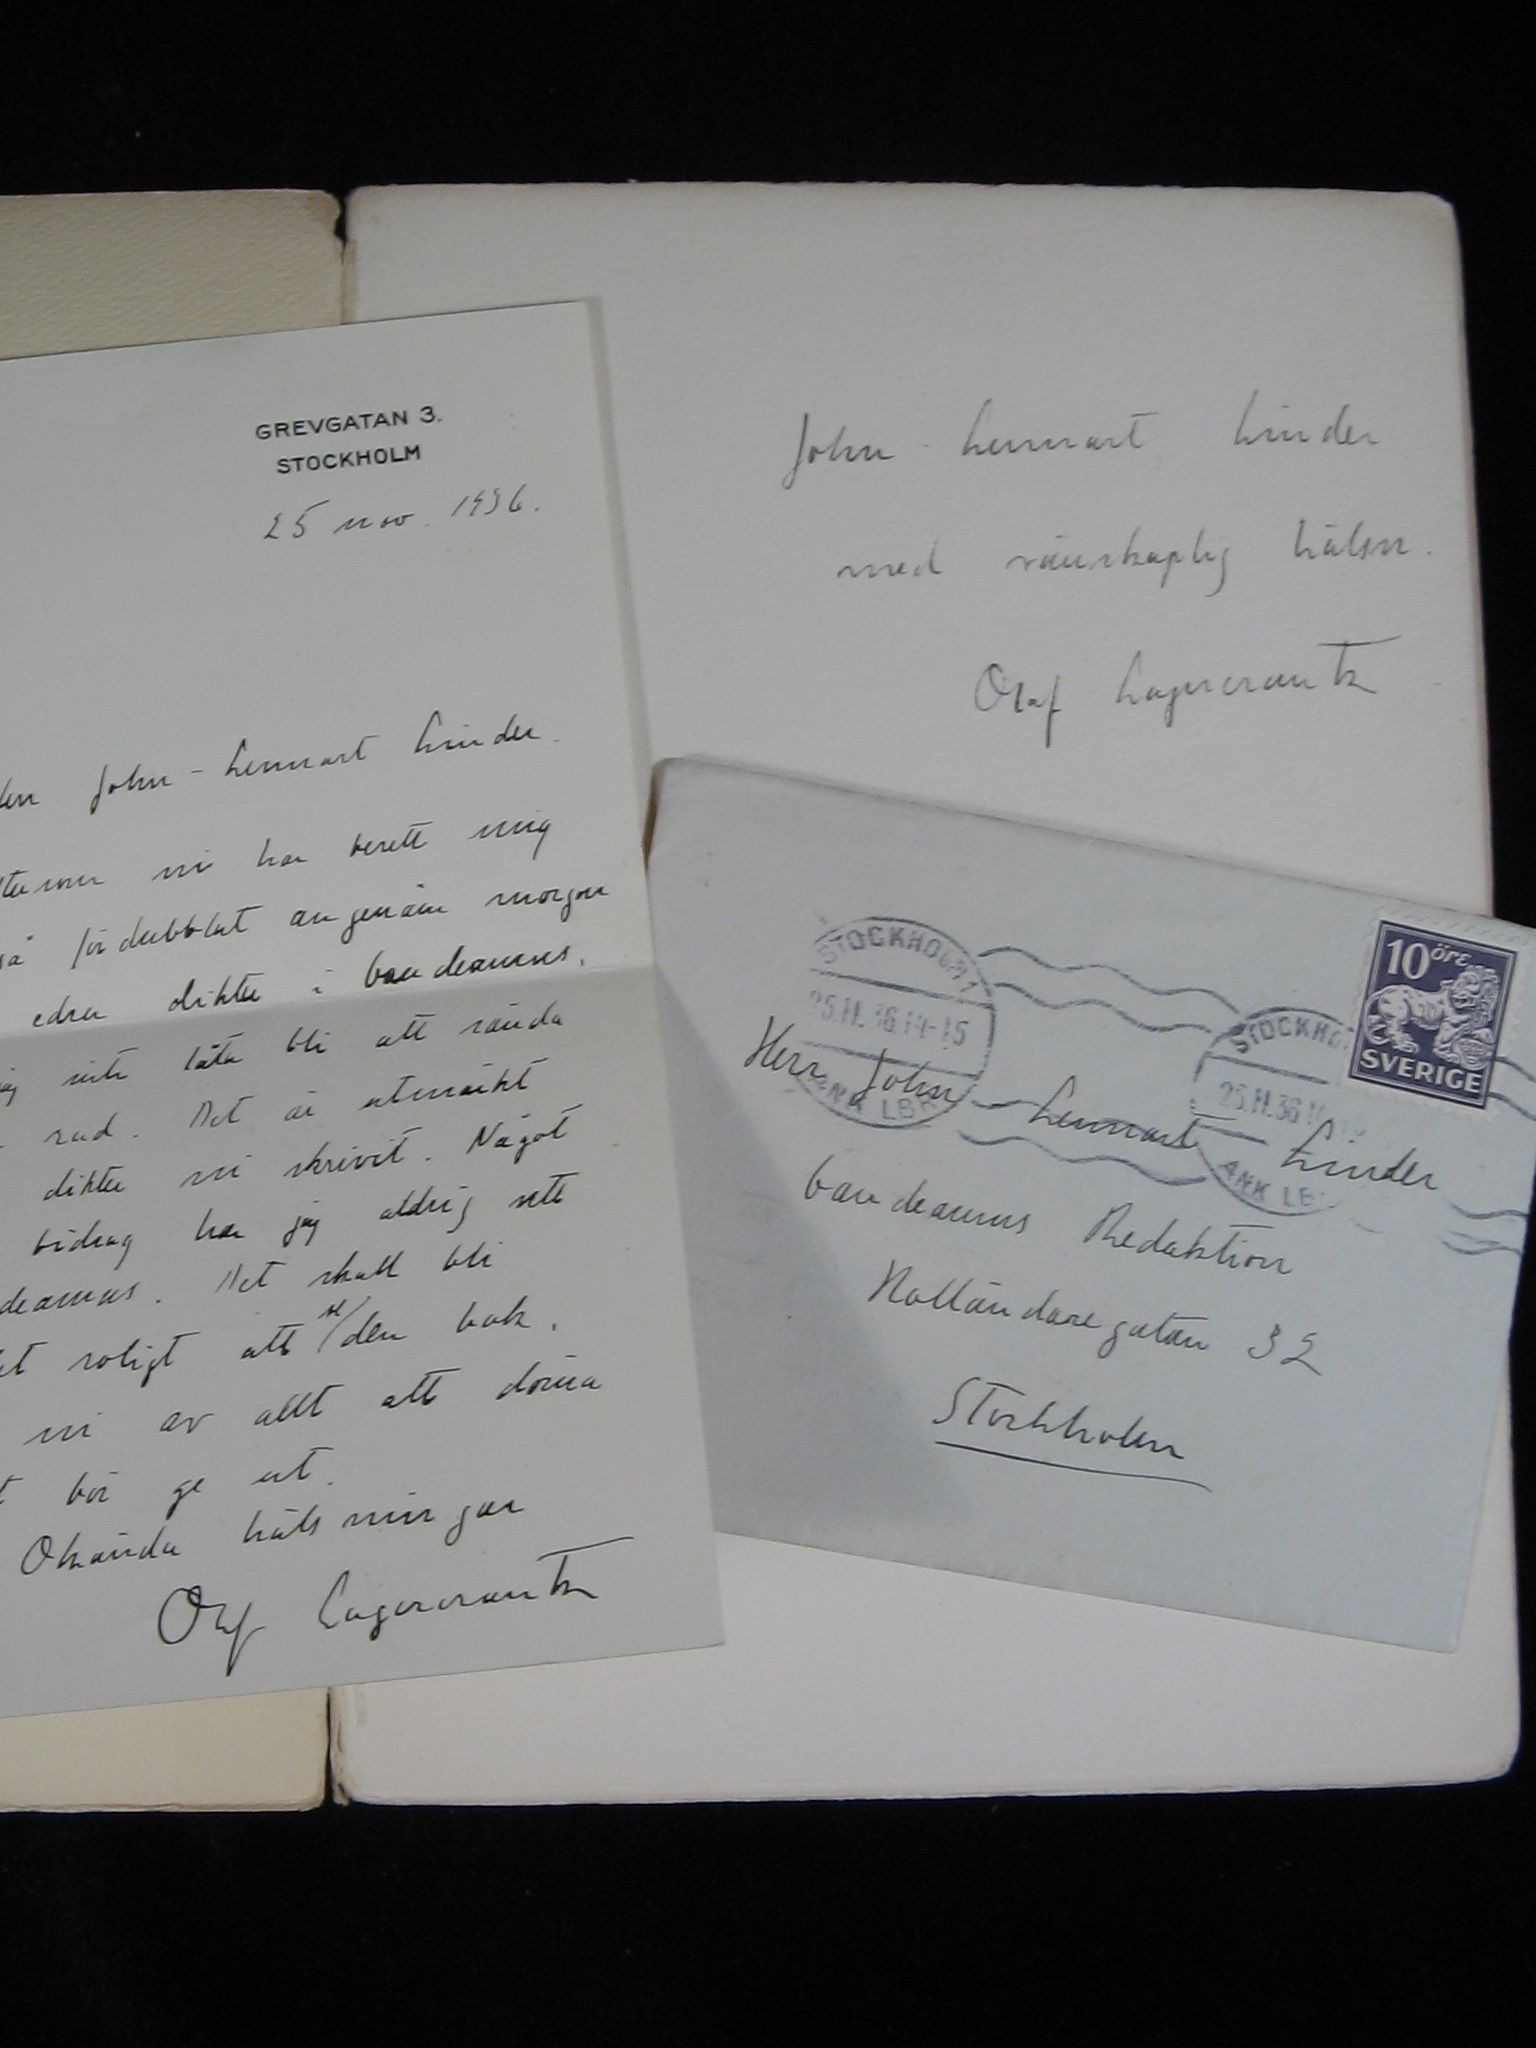 GREVGATAN 3.
STOCKHOLM
25 nov. 1936.
John-Lennart Linder.
ni har berett mig
så fördubblat angenäm morgon
edra dikter i Gaudeamus,
jag inte låta bli att sända
rad. Det är utmärkt
dikter ni skrivit. Något
bidrag har jag aldrig sett
deamus. Det skall bli
roligt att se/den bok,
ni av allt att döma
bör ge ut.
Okända hälsningar
Olof Lagercrantz
John-Lennart Linder
med vänskaplig hälsn.
Olof Lagercrantz
STOCKHOLM 1
25.11.36.14-15
ANK LBR
STOCKHO
25.11.36
ANK LB
10 öre
SVERIGE
Herr John Lennart Linder
Gaudeamus Redaktion
Holländaregatan 32
Stockholm